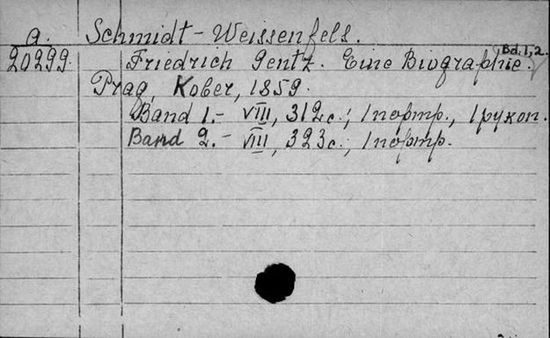 a. Schmidt-Weissenfels.
20299 Friedrich Gentz. Eine Biographie. Bd. 1, 2.
Prag, Kober, 1859.
Band 1.- VIII, 312 с.; 1 портр., 1 рукоп.
Band 2.- VIII, 323 с.; 1 портр.